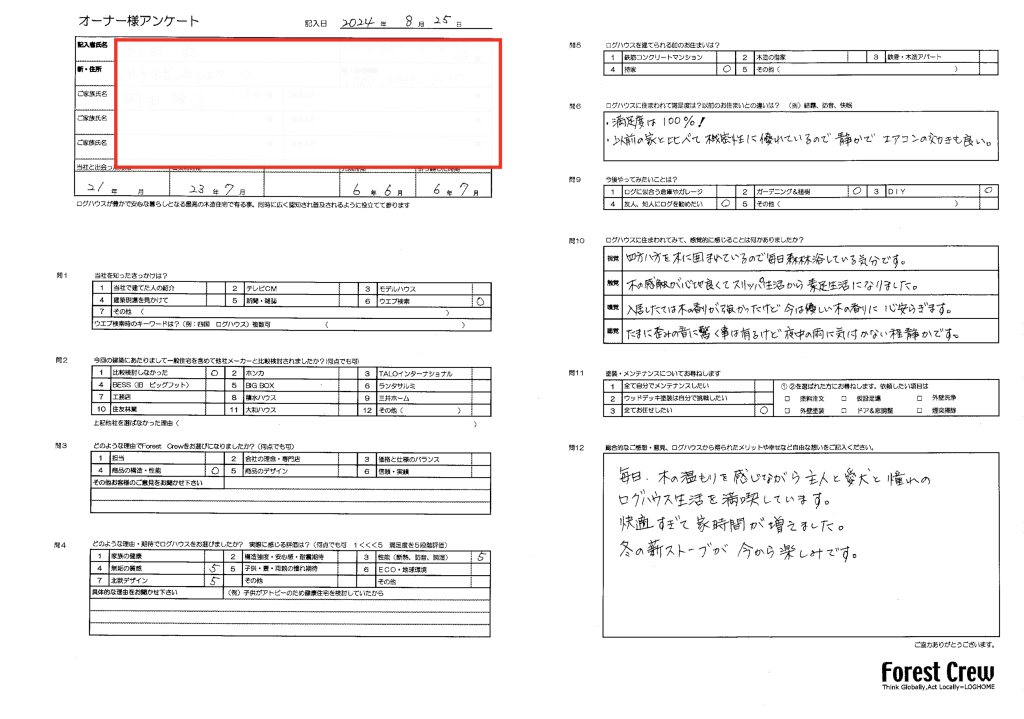 オーナー様アンケート
記入日 2024 年 8 月 25 日
記入者氏名
新・住所
ご家族氏名
ご家族氏名
ご家族氏名
21 年 月 23 年 7 月 6 年 6 月 6 年 7 月
ログハウスが豊かで安心な暮らしとなる最高の木造住宅で有る事。同時に広く認知され普及されるように役立てて参ります
問1 当社を知ったきっかけは?
1 当社で建てた人の紹介 2 テレビCM 3 モデルハウス
4 建築現場を見かけて 5 新聞・雑誌 6 ウエブ検索 ○
7 その他 ( )
ウエブ検索時のキーワードは?(例:四国 ログハウス)複数可 ( )
問2 今回の建築にあたりまして一般住宅を含めて他社メーカーと比較検討されましたか?(何点でも可)
1 比較検討しなかった ○ 2 ホンカ 3 TALOインターナショナル
4 BESS(旧 ビッグフット) 5 BIG BOX 6 ランタサルミ
7 工務店 8 積水ハウス 9 三井ホーム
10 住友林業 11 大和ハウス 12 その他 ( )
上記他社を選ばなかった理由 ( )
問3 どのような理由でForest Crewをお選びになりましたか?(何点でも可)
1 担当 2 会社の理念・専門店 3 価格と仕様のバランス
4 商品の構造・性能 ○ 5 商品のデザイン 6 信頼・実績
その他お客様のご意見をお聞かせ下さい
問4 どのような理由・期待でログハウスをお選びましたか? 実際に感じる評価は?(何点でも可 1<<<5 満足度を5段階評価)
1 家族の健康 2 構造強度・安心感・耐震期待 3 性能(断熱、防音、調湿) 5
4 無垢の質感 5 5 子供・妻・両親の憧れ期待 6 ECO・地球環境
7 北欧デザイン 5 その他 その他
具体的な理由をお聞かせ下さい (例)子供がアトピーのため健康住宅を検討していたから
問5 ログハウスを建てられる前のお住まいは?
1 鉄筋コンクリートマンション 2 木造の借家 3 鉄骨・木造アパート
4 持家 ○ 5 その他 ( )
問6 ログハウスに住まわれて満足度は?以前のお住まいとの違いは? (例)結露、防音、快眠
・満足度は100%!
・以前の家と比べて機密性に優れているので静かでエアコンの効きも良い。
問9 今後やってみたいことは?
1 ログに似合う倉庫やガレージ 2 ガーデニング&植樹 ○ 3 DIY ○
4 友人、知人にログを勧めたい ○ 5 その他 ( )
問10 ログハウスに住まわれてみて、感覚的に感じることは何かありましたか?
視覚 四方八方を木に囲まれているので毎日森林浴している気分です。
触覚 木の感触が心地良くてスリッパ生活から素足生活になりました。
嗅覚 入居したては木の香りが強かったけど今は優しい木の香りに心安らぎます。
聴覚 たまに歪みの音に驚く事は有るけど夜中の雨に気付かない程静かです。
問11 塗装・メンテナンスについてお尋ねします
1 全て自分でメンテナンスしたい ①②を選ばれた方にお尋ねします。依頼したい項目は
2 ウッドデッキ塗装は自分で挑戦したい □ 塗料注文 □ 仮設足場 □ 外壁洗浄
3 全てお任せしたい ○ □ 外壁塗装 □ ドア&窓調整 □ 煙突掃除
問12 総合的なご感想・意見、ログハウスから得られたメリットや幸せなど自由な想いをご記入ください。
毎日、木の温もりを感じながら主人と愛犬と憧れの
ログハウス生活を満喫しています。
快適すぎて家時間が増えました。
冬の薪ストーブが今から楽しみです。
ご協力ありがとうございます。
Forest Crew
Think Globally,Act Locally=LOGHOME